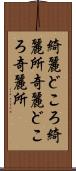 綺麗どころ綺
麗所奇麗どこ
ろ奇麗所